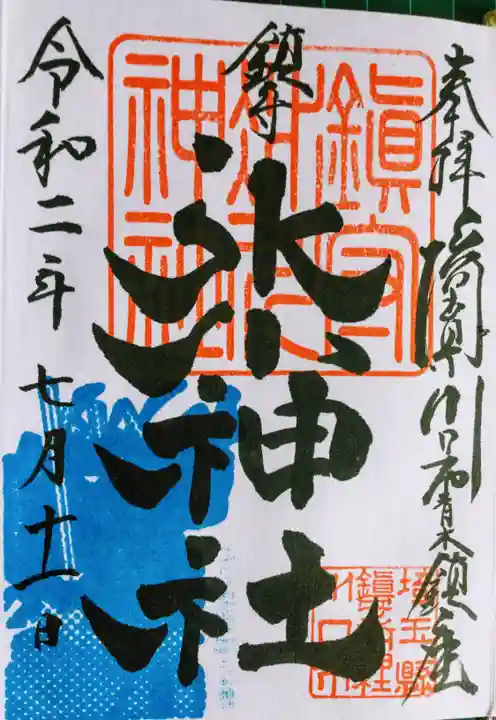 奉拝 埼玉県川口市青木鎮座
鎮守
氷川神社
令和二年七月十一日
鎮守
氷川
神社
埼玉縣
鎮守社
川口市